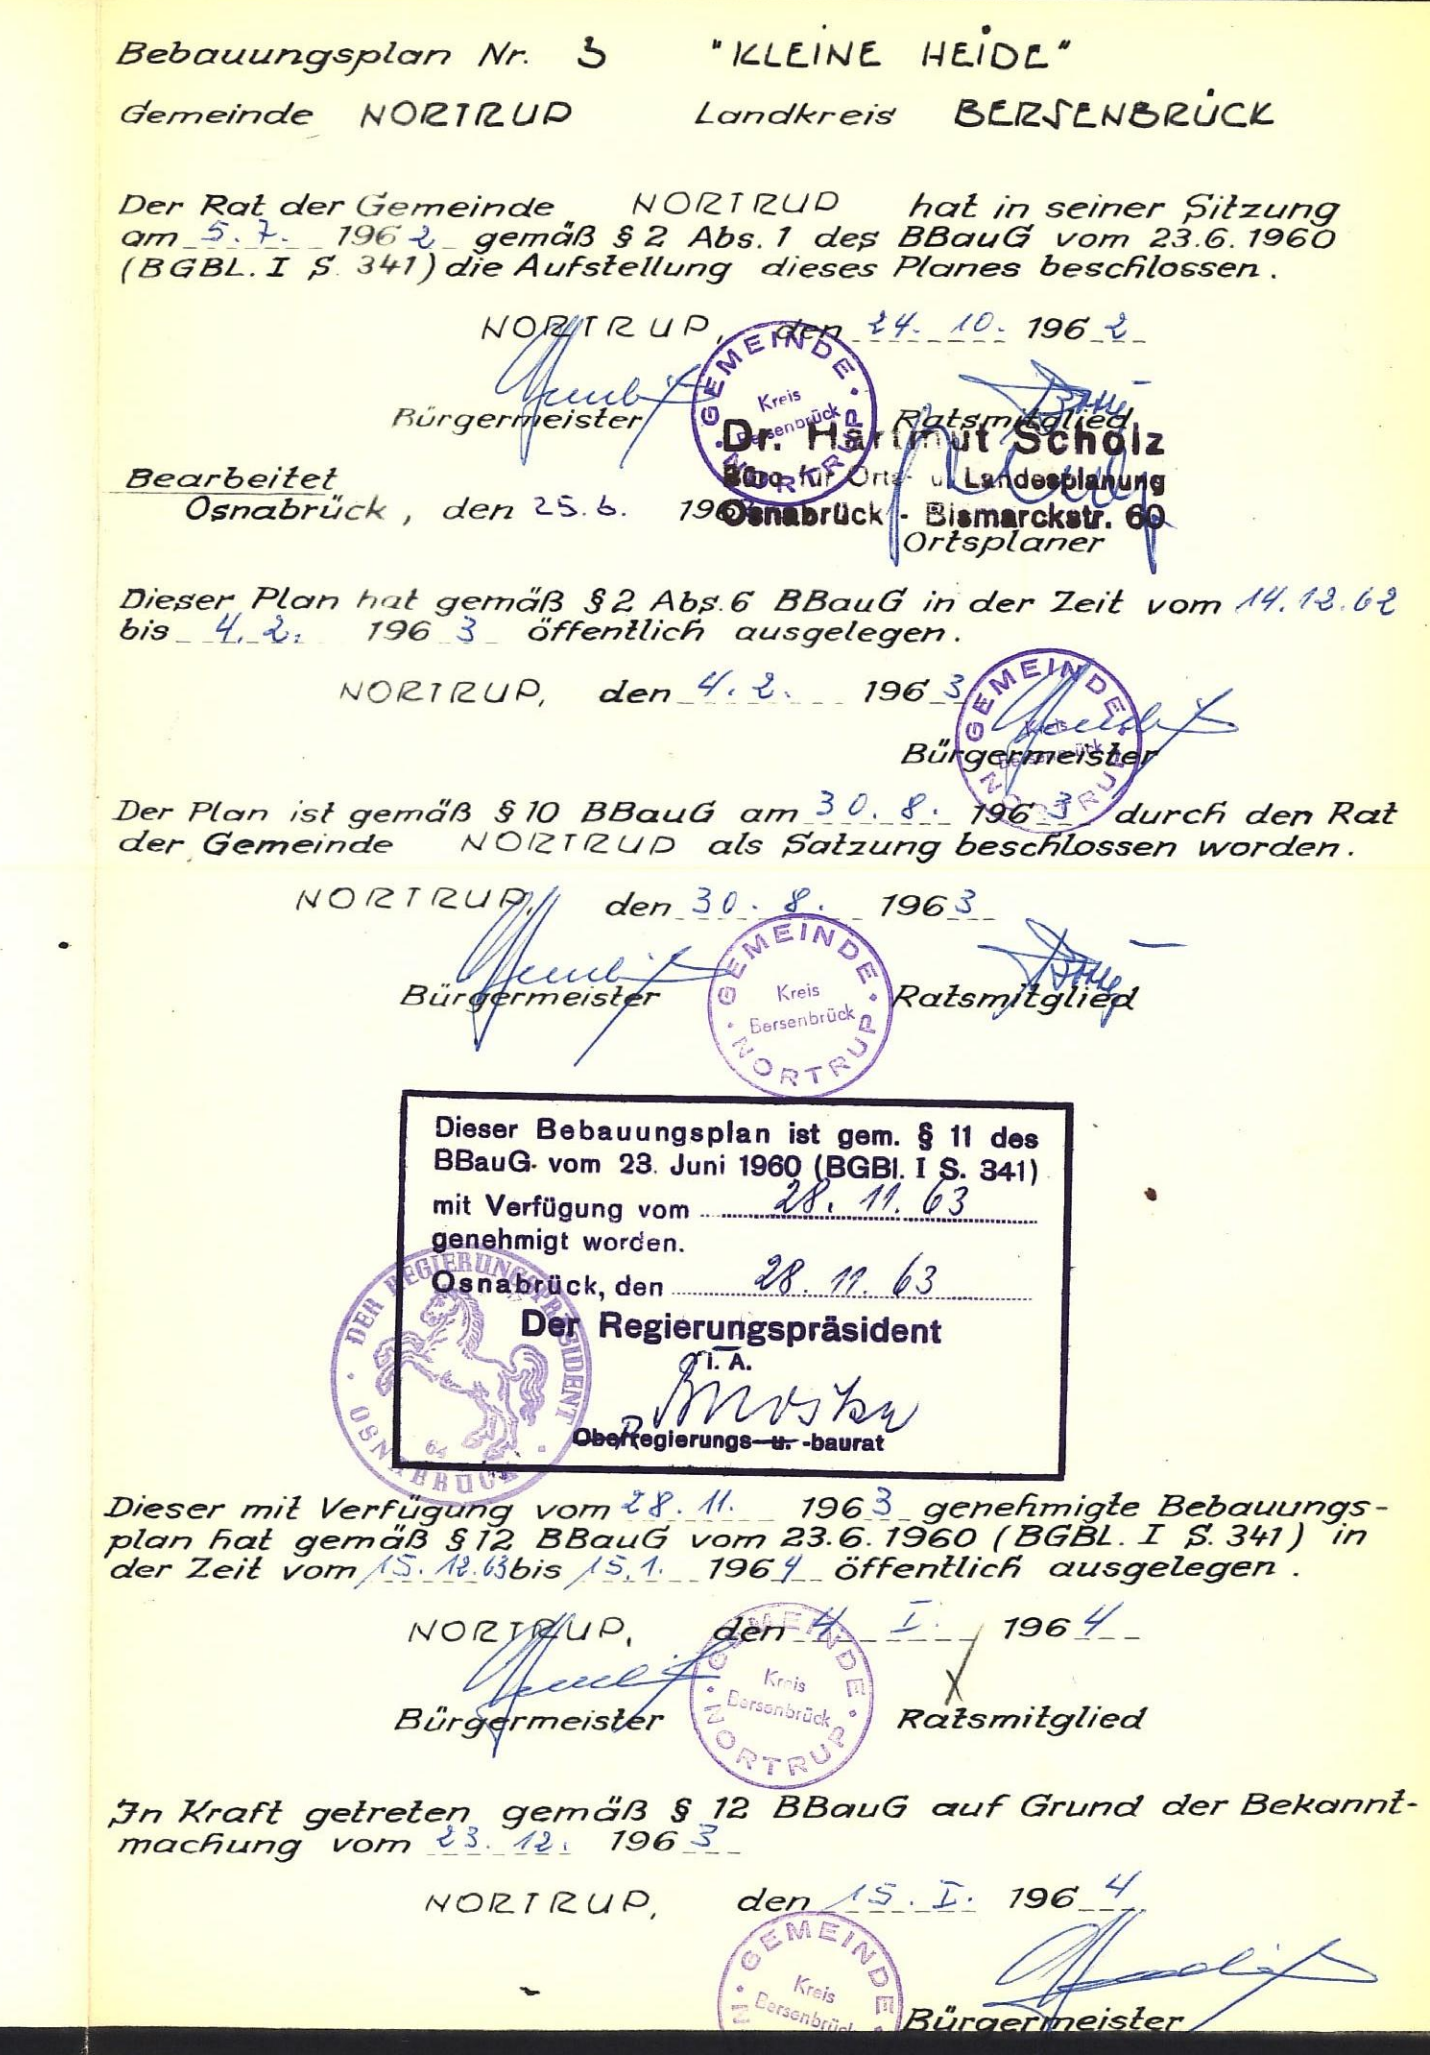 Bebauungsplan Nr. 3 "KLEINE HEIDE"
Gemeinde NORTRUP Landkreis BERSENBRÜCK
Der Rat der Gemeinde NORTRUP hat in seiner Sitzung
am 5.7. 1962 gemäß § 2 Abs. 1 des BBauG vom 23.6.1960
(BGBL. I S. 341) die Aufstellung dieses Planes beschlossen.
NORTRUP, den 24. 10. 1962
GEMEINDE NORTRUP
Kreis
Bersenbrück
Bürgermeister Ratsmitglied
Dr. Hartmut Scholz
Büro für Orts- u. Landesplanung
Osnabrück - Bismarckstr. 60
Bearbeitet
Osnabrück, den 25.6. 196
Ortsplaner
Dieser Plan hat gemäß § 2 Abs. 6 BBauG in der Zeit vom 14.12.62
bis 4.2. 1963 öffentlich ausgelegen.
NORTRUP, den 4.2. 1963
GEMEINDE NORTRUP
Kreis
Bersenbrück
Bürgermeister
Der Plan ist gemäß § 10 BBauG am 30.8. 1963 durch den Rat
der Gemeinde NORTRUP als Satzung beschlossen worden.
NORTRUP, den 30.8. 1963
GEMEINDE NORTRUP
Kreis
Bersenbrück
Bürgermeister Ratsmitglied
Dieser Bebauungsplan ist gem. § 11 des
BBauG. vom 23. Juni 1960 (BGBl. I S. 341)
mit Verfügung vom 28. 11. 63
genehmigt worden.
Osnabrück, den 28. 11. 63
Der Regierungspräsident
i. A.
Oberregierungs- u. -baurat
DER REGIERUNGSPRÄSIDENT OSNABRÜCK
64
Dieser mit Verfügung vom 28.11. 1963 genehmigte Bebauungs-
plan hat gemäß § 12 BBauG vom 23.6.1960 (BGBL. I S. 341) in
der Zeit vom 15.12.63 bis 15.1. 1964 öffentlich ausgelegen.
NORTRUP, den 4. I. 1964
GEMEINDE NORTRUP
Kreis
Bersenbrück
Bürgermeister Ratsmitglied
In Kraft getreten gemäß § 12 BBauG auf Grund der Bekannt-
machung vom 23.12. 1963
NORTRUP, den 15. I. 1964
GEMEINDE
Kreis
Bersenbrück
Bürgermeister